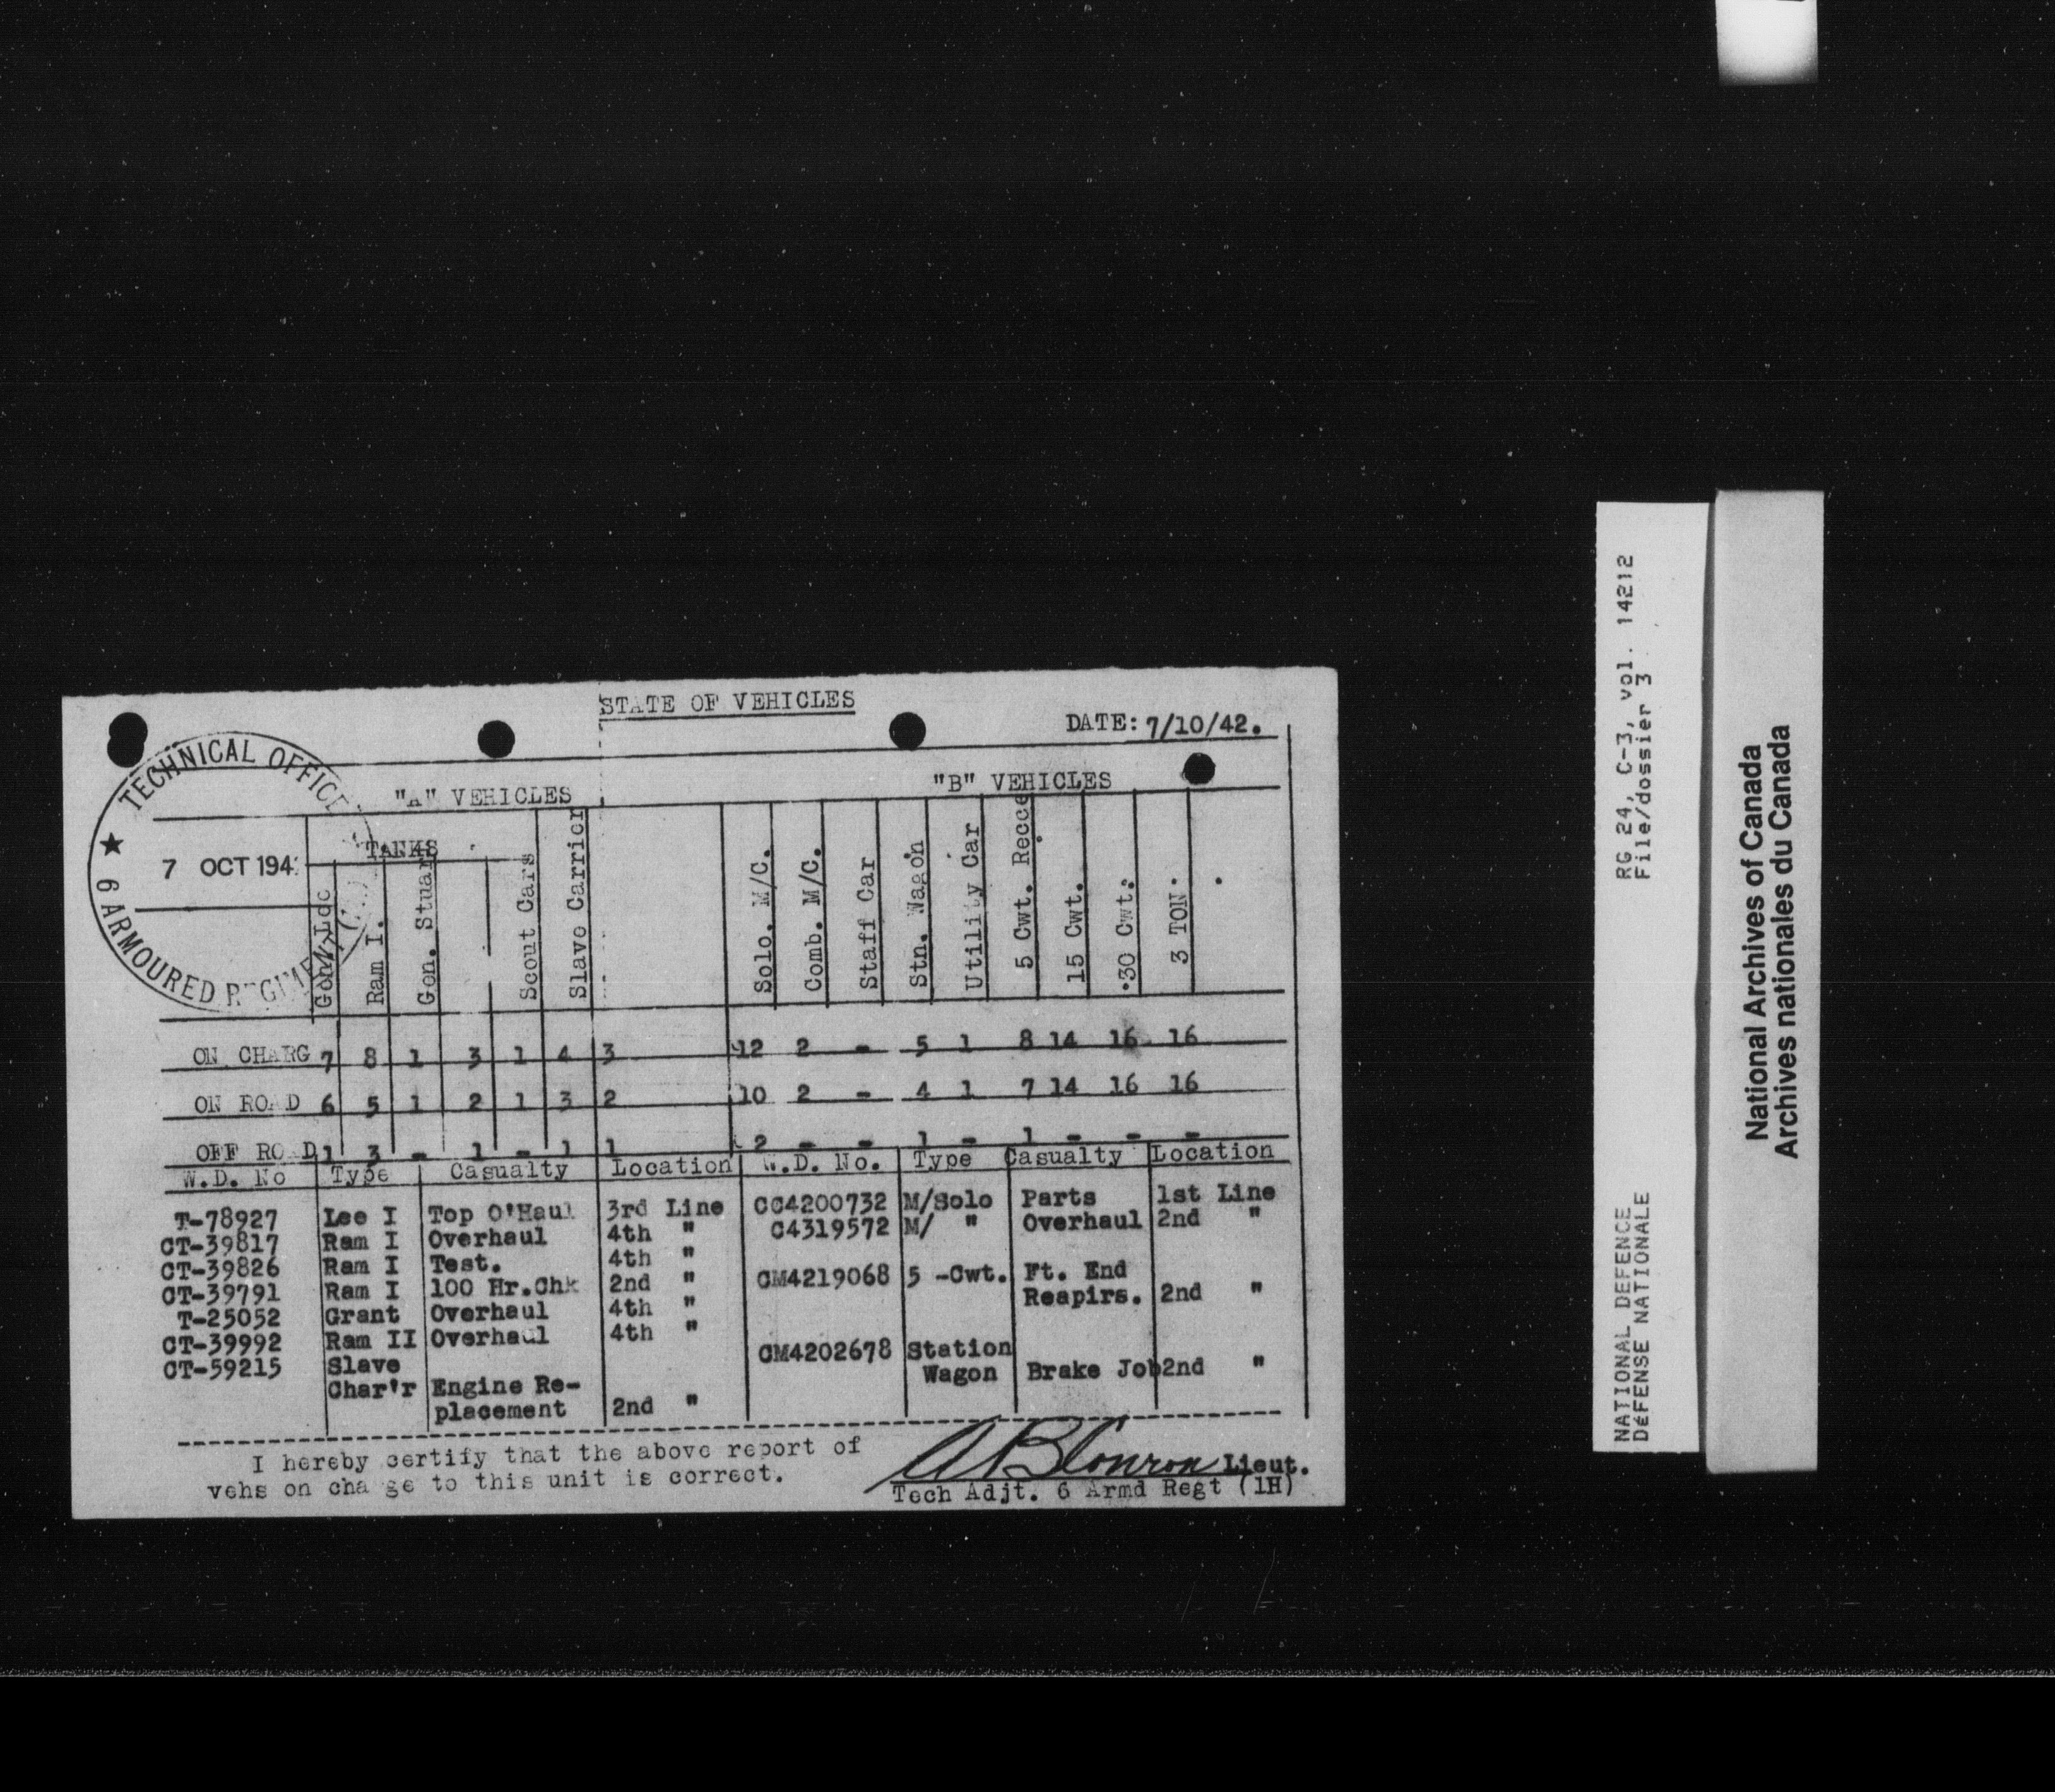 STATE OF VEHICLES
DATE: 7/10/42.
TECHNICAL OFFICE
★ 6 ARMOURED REGIMENT
7 OCT 194
"A" VEHICLES
"B" VEHICLES
TANKS
Ram I.
Gen. Stuar
Scout Cars
Slave Carrior
Solo. M/C.
Comb. M/C.
Staff Car
Stn. Wagon
Utility Car
5 Cwt. Recce
15 Cwt.
.30 Cwt.
3 TON.
ON CHARG 7 8 1 3 1 4 3 12 2 - 5 1 8 14 16 16
ON ROAD 6 5 1 2 1 3 2 10 2 - 4 1 7 14 16 16
OFF ROAD 1 3 - 1 - 1 1 2 - - 1 - 1 - - -
W.D. No Type Casualty Location W.D. No. Type Casualty Location
T-78927 Lee I Top O'Haul 3rd Line CC4200732 M/Solo Parts 1st Line
CT-39817 Ram I Overhaul 4th " C4319572 M/ " Overhaul 2nd "
CT-39826 Ram I Test. 4th "
CT-39791 Ram I 100 Hr.Chk 2nd " CM4219068 5 -Cwt. Ft. End
T-25052 Grant Overhaul 4th " Reapirs. 2nd "
CT-39992 Ram II Overhaul 4th "
CT-59215 Slave CM4202678 Station
Char'r Engine Re- Wagon Brake Job 2nd "
placement 2nd "
I hereby certify that the above report of
vehs on cha ge to this unit is correct.
Lieut.
Tech Adjt. 6 Armd Regt (1H)
RG 24, C-3, vol. 14212
File/dossier 3
NATIONAL DEFENCE
DéFENSE NATIONALE
National Archives of Canada
Archives nationales du Canada